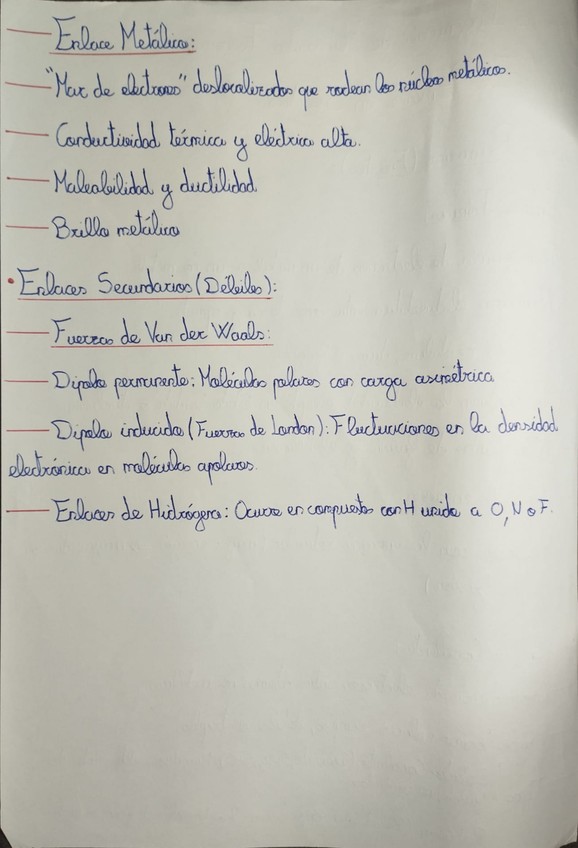 — Enlace Metálico:
— "Mar de electrones" deslocalizados que rodean los núcleos metálicos.
— Conductividad térmica y eléctrica alta.
— Maleabilidad y ductilidad
— Brillo metálico
• Enlaces Secundarios (Débiles):
— Fuerzas de Van der Waals:
— Dipolo permanente: Moléculas polares con carga asimétrica
— Dipolo inducido (Fuerzas de London): Fluctuaciones en la densidad
electrónica en moléculas apolares.
— Enlaces de Hidrógeno: Ocurre en compuestos con H unido a O, N o F.